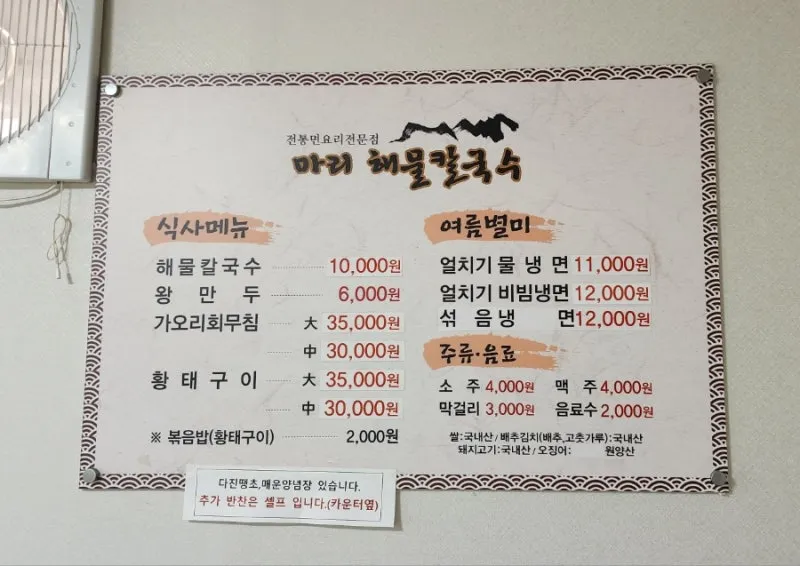 전통면요리전문점
마리 해물칼국수
식사메뉴
해물칼국수 10,000원
왕만두 6,000원
가오리회무침 大 35,000원
中 30,000원
황태구이 大 35,000원
中 30,000원
※ 볶음밥(황태구이) 2,000원
여름별미
얼치기 물 냉 면 11,000원
얼치기 비빔냉면 12,000원
섞음냉 면12,000원
주류·음료
소주 4,000원 맥주 4,000원
막걸리 3,000원 음료수 2,000원
쌀:국내산 / 배추김치(배추,고춧가루):국내산
돼지고기:국내산 / 오징어: 원양산
다진땡초,매운양념장 있습니다.
추가 반찬은 셀프 입니다.(카운터옆)